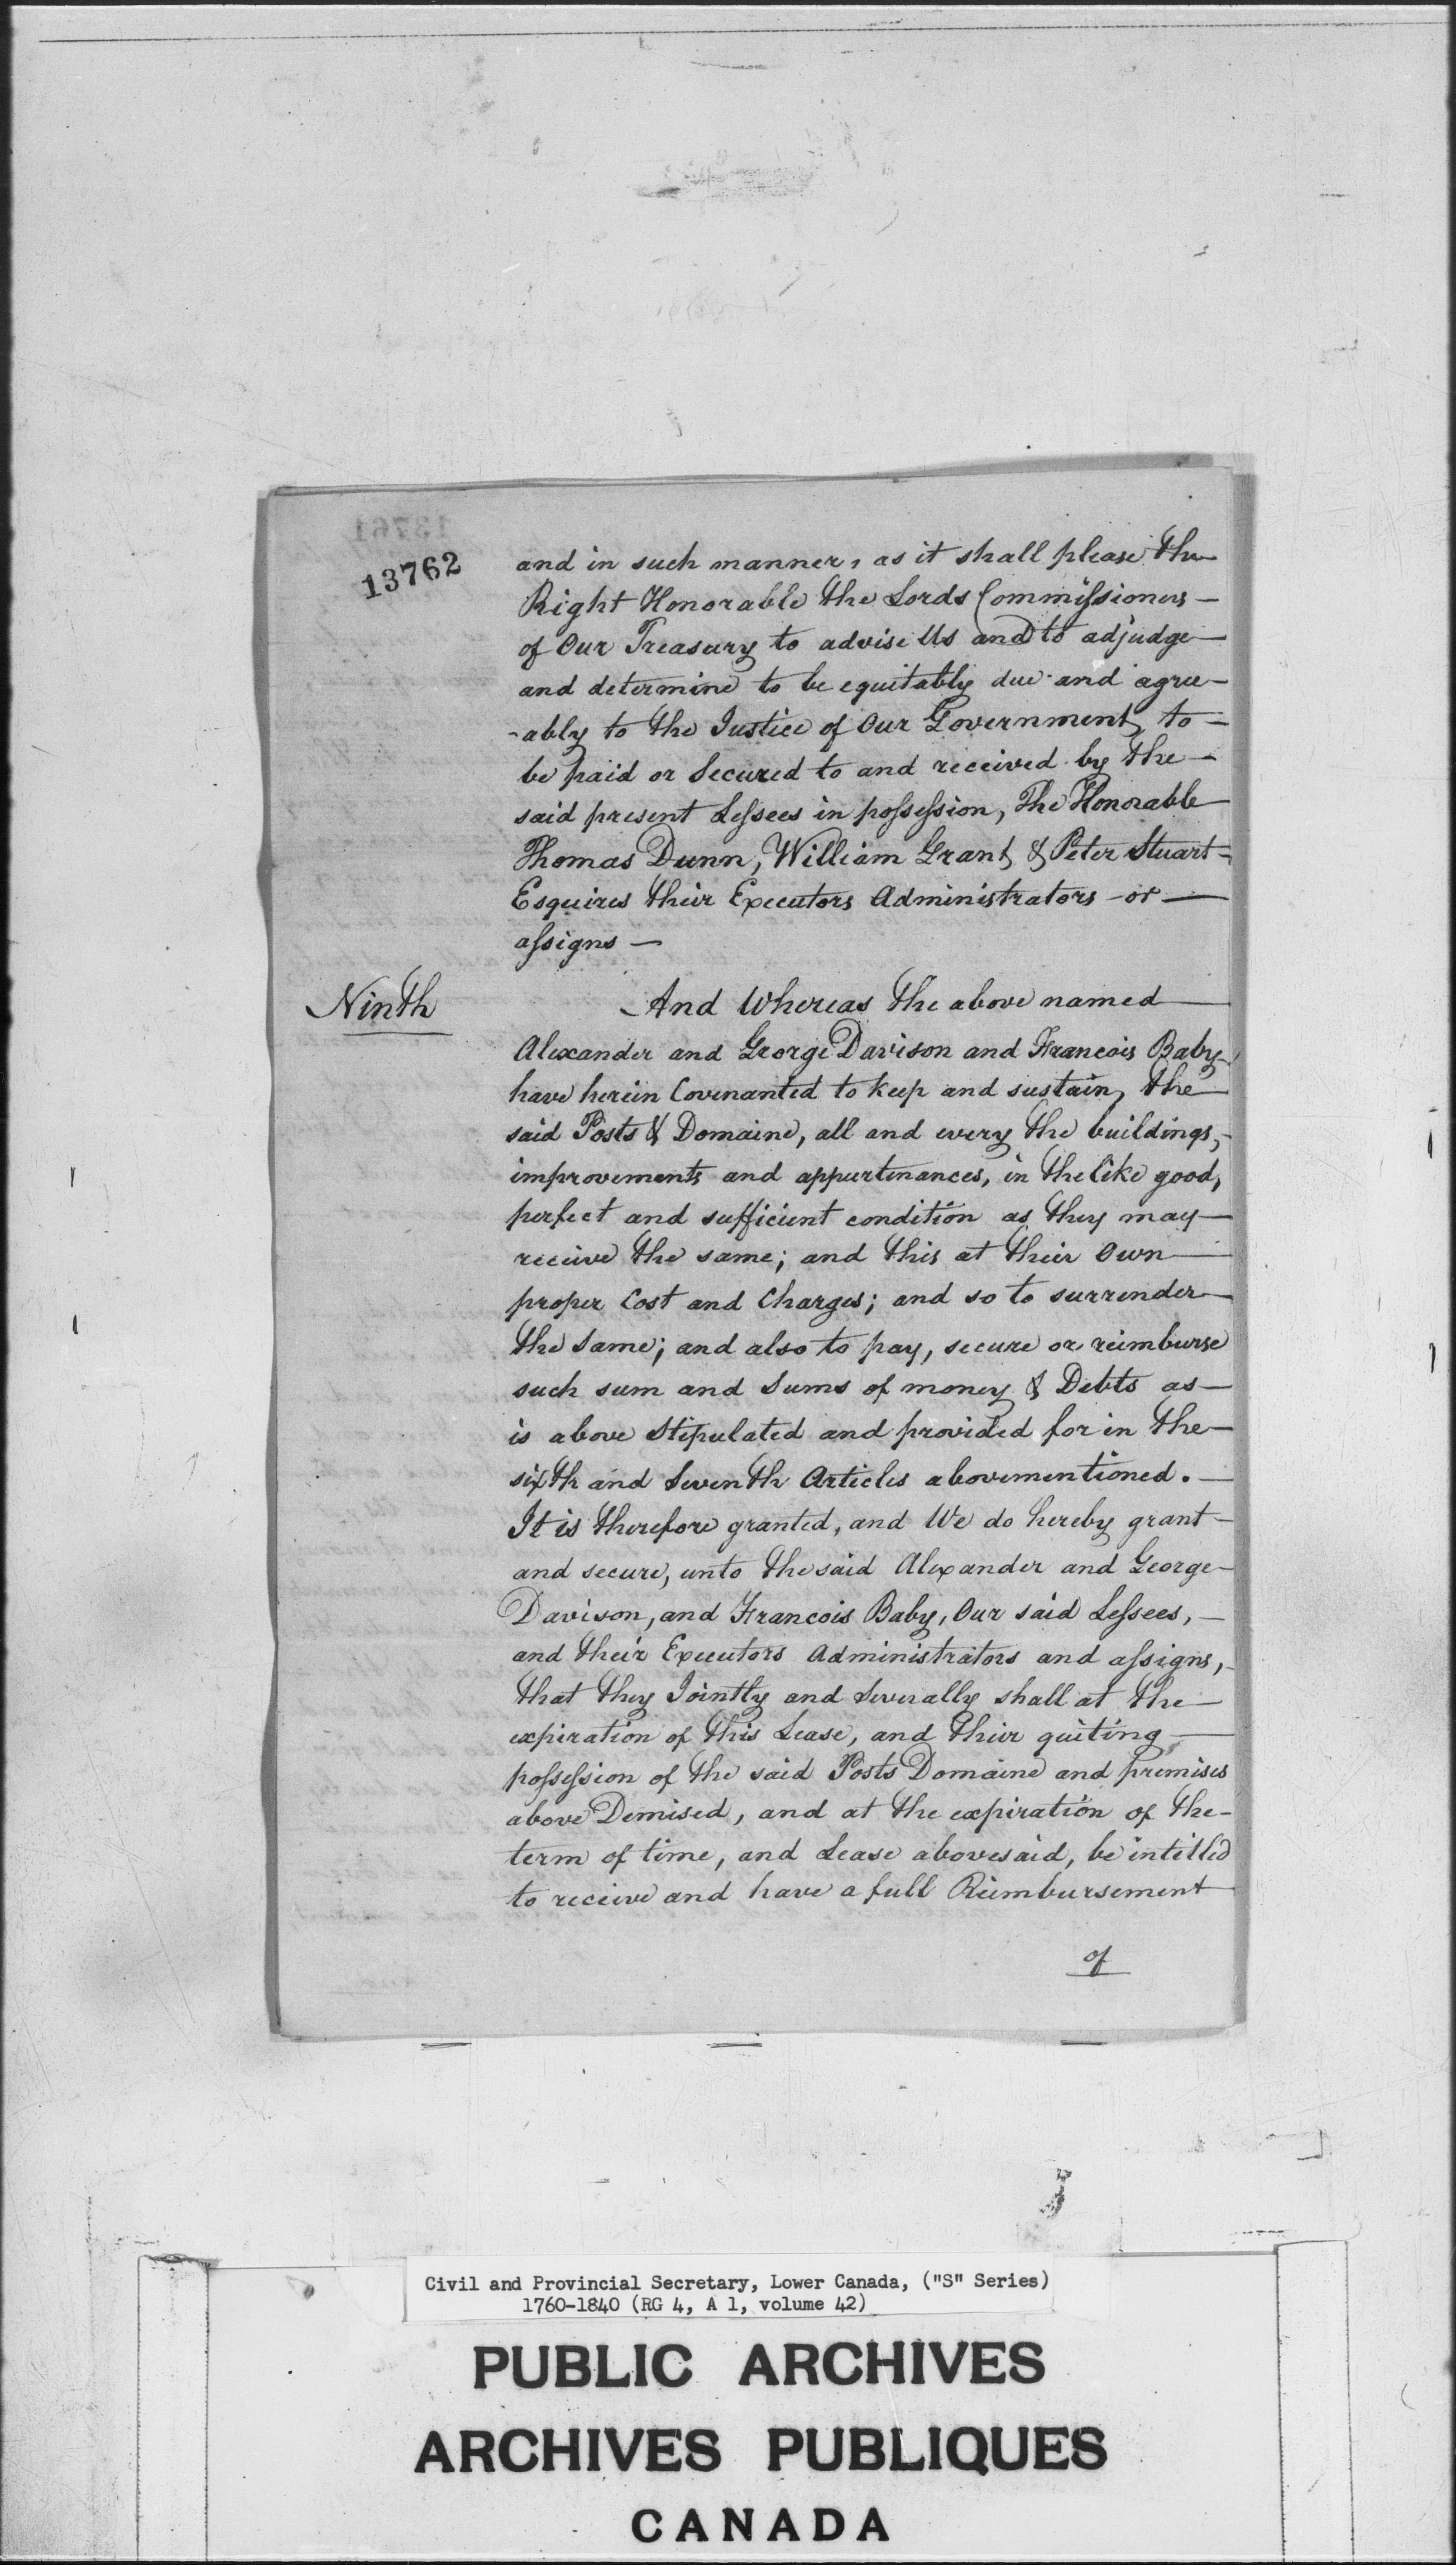 13762
and in such manner, as it shall please the
Right Honorable the Lords Commissioners —
of Our Treasury to advise Us and to adjudge —
and determine to be equitably due and agree-
-ably to the Justice of Our Government, to —
be paid or Secured to and received by the —
said present Lessees in possession, The Honorable
Thomas Dunn, William Grant & Peter Stuart -
Esquires their Executors Administrators or —
assigns —
Ninth
And Whereas the above named —
Alexander and George Davison and Francois Baby
have herein Covenanted to keep and sustain, the —
said Posts & Domaine, all and every the buildings, -
improvements and appurtenances, in the like good,
perfect and sufficient condition as they may —
receive the same; and this at their Own —
proper Cost and Charges; and so to surrender —
the Same; and also to pay, secure or reimburse
such sum and Sums of money & Debts as —
is above Stipulated and provided for in the —
sixth and Seventh Articles abovementioned. —
It is therefore granted, and We do hereby grant -
and secure, unto the said Alexander and George -
Davison, and Francois Baby, Our said Lessees, —
and their Executors Administrators and assigns, -
that they Jointly and Severally shall at the —
expiration of this Lease, and their quiting —
possession of the said Posts Domaine and premises
above Demised, and at the expiration of the -
term of time, and Lease abovesaid, be intitled
to receive and have a full Reimbursement
of
Civil and Provincial Secretary, Lower Canada, ("S" Series)
1760-1840 (RG 4, A 1, volume 42)
PUBLIC ARCHIVES
ARCHIVES PUBLIQUES
CANADA